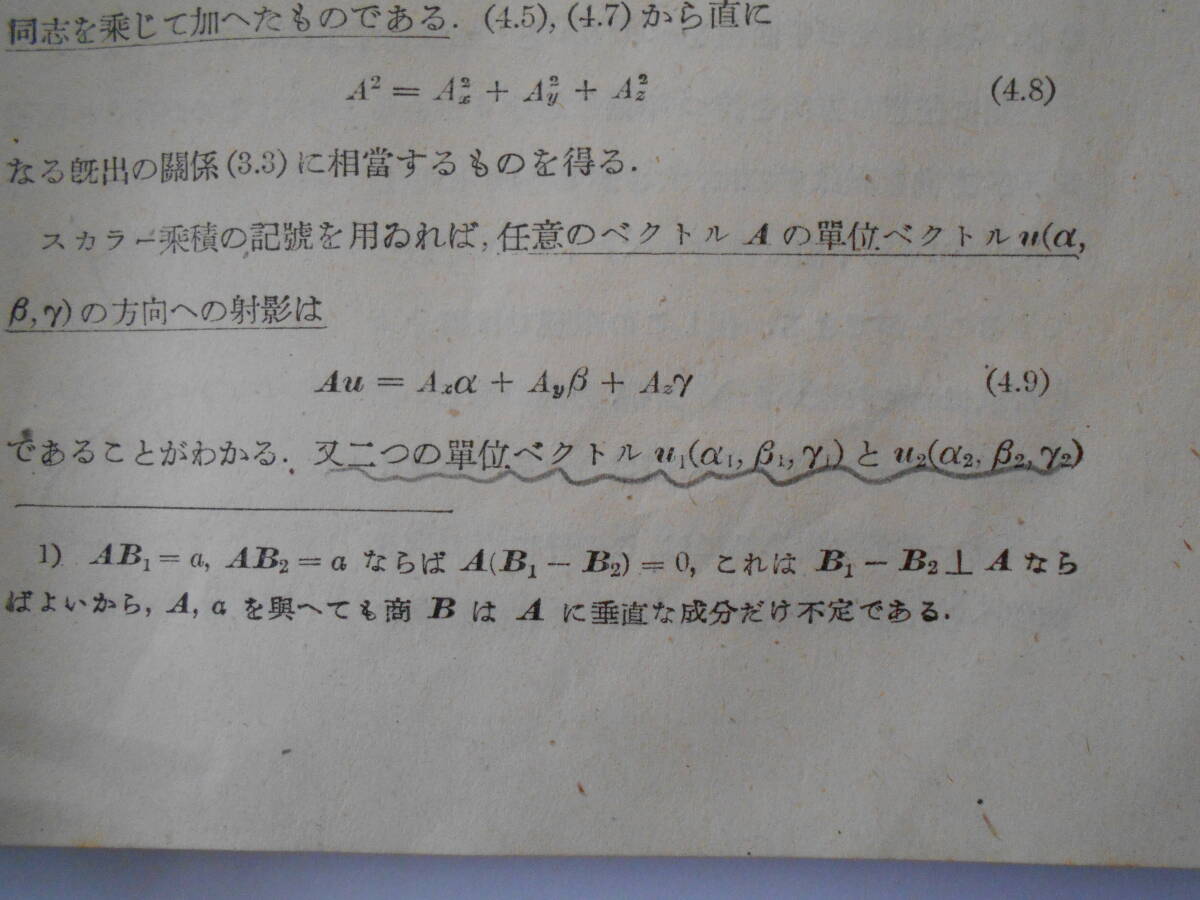 同志を乘じて加へたものである. (4.5), (4.7) から直に
A² = Aₓ² + A_y² + A_z² (4.8)
なる既出の關係 (3.3) に相當するものを得る.
スカラー乘積の記號を用ゐれば, 任意のベクトル A の單位ベクトル u(α,
β, γ) の方向への射影は
Au = Aₓα + A_yβ + A_zγ (4.9)
であることがわかる. 又二つの單位ベクトル u₁(α₁, β₁, γ₁) と u₂(α₂, β₂, γ₂)
1) AB₁ = a, AB₂ = a ならば A(B₁ − B₂) = 0, これは B₁ − B₂ ⊥ A なら
ばよいから, A, a を與へても商 B は A に垂直な成分だけ不定である.